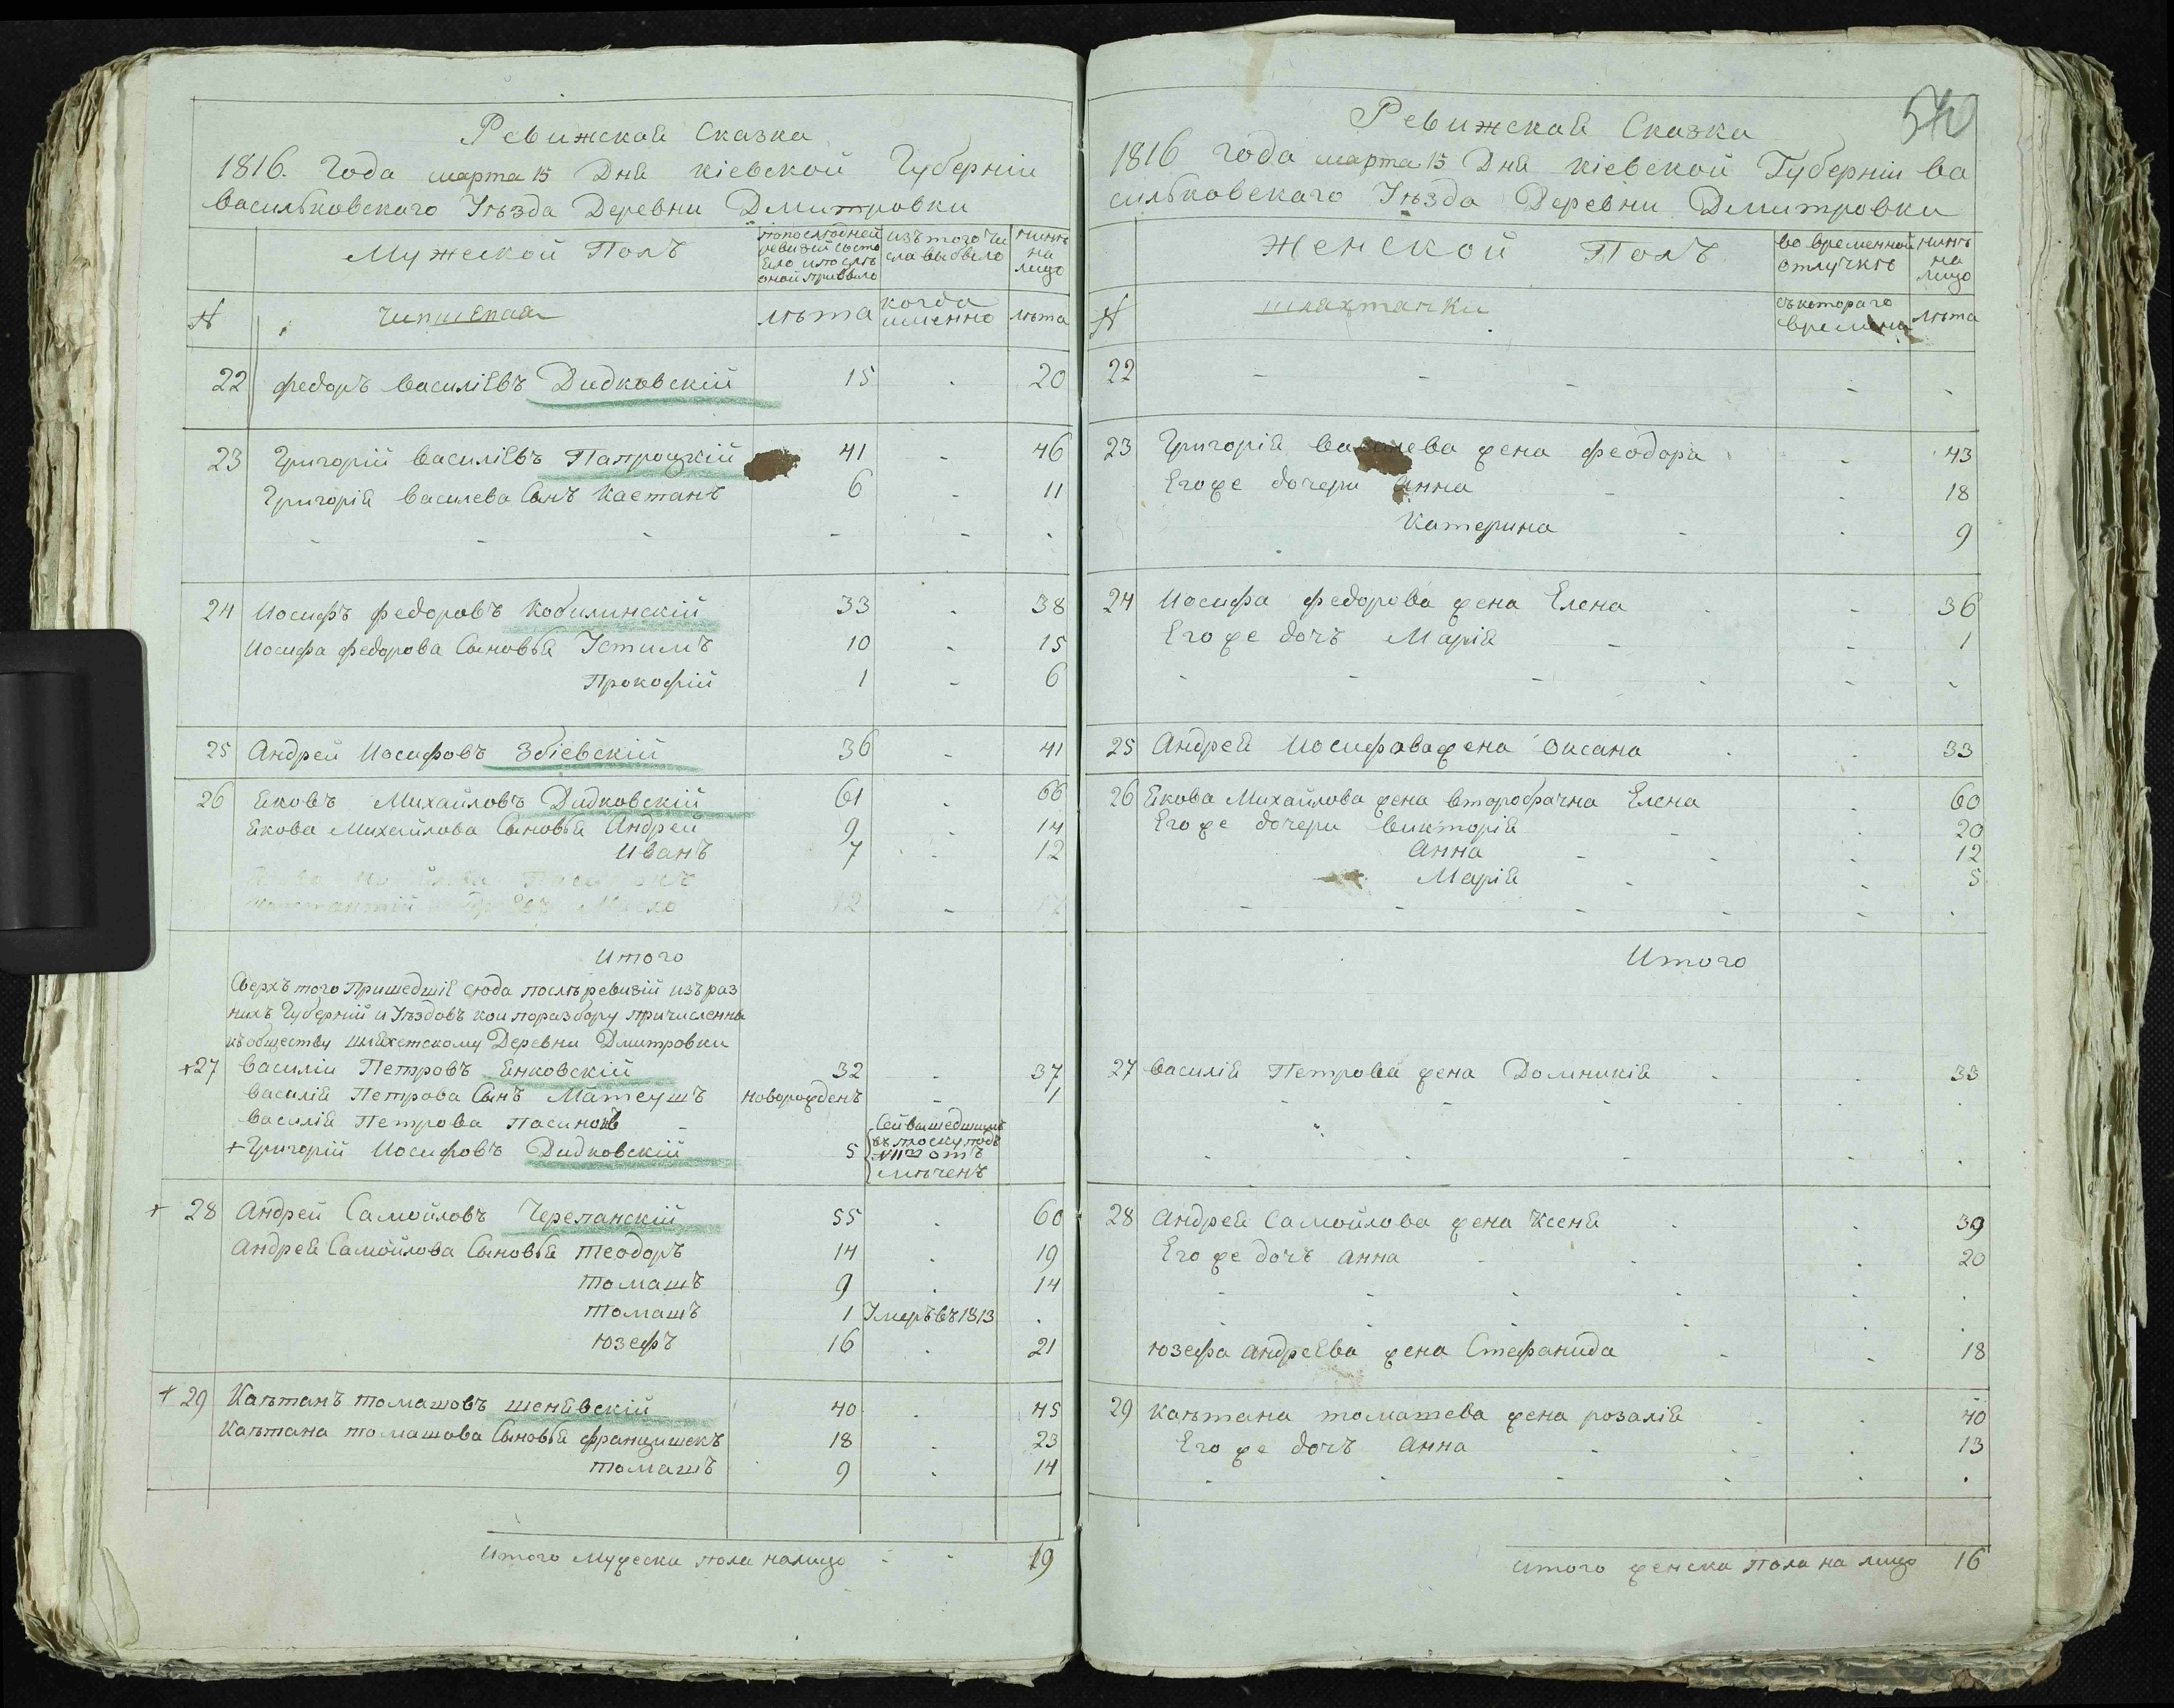 Ревижская Сказка
1816. Года марта 15 Дня кіевской Губерніи
васильковскаго Уѣзда Деревни Дмитровки
Мужеской Полъ
попослѣдней ревизіи состо яло ипослѣ оной прибыло
изътого чи сла выбыло
нынѣ на лицо
№
чиншевая
лѣта
когда именно
лѣта
22 федоръ василіевъ Дидковскій 15 - 20
23 Григорій василіевъ Папроцкій 41 - 46
Григорія василева Сынъ каетанъ 6 - 11
24 Иосифъ федоровъ кобилинскій 33 - 38
Иосифа федорова Сыновья Устимъ 10 - 15
Прокофій 1 - 6
25 Андрей Иосифовъ Збіевскій 36 - 41
26 Яковъ Михайловъ Дидковскій 61 - 66
Якова Михайлова Сыновья Андрей 9 - 14
Иванъ 7 - 12
12 - 17
Итого
Сверхъ того пришедшіе сюда послѣ ревизіи изъ раз
нихъ Губерній и Уѣздовъ кои поразбору причисленны
къобществу шляхетскому Деревни Дмитровки
+27 василіи Петровъ Янковскій 32 - 37
василія Петрова Сынъ Матеушъ новорожденъ - 1
василія Петрова пасинокъ -
+ Григорій Иосифовъ Дидковскій 5
Сей вышедшимъ
подъ
№ 11м от
мѣченъ
+ 28 Андрей Самойловъ Черепанскій 55 - 60
Андрея Самойлова Сыновья теодоръ 14 - 19
томашъ 9 - 14
томашъ 1 Умеръ въ 1813 -
юзефъ 16 - 21
+ 29 Каѣтанъ томашовъ шенявскій 40 - 45
Каѣтана томашова Сыновья францишекъ 18 - 23
томашъ 9 - 14
Итого мужеска пола налицо - - 19
540
Ревижская Сказка
1816 года марта 15 Дня кіевской Губерніи ва
сильковскаго Уѣзда Деревни Дмитровки
Женской Полъ
во временной отлучкѣ
нинѣ на лицо
№
шляхтянки
съкотораго времени
лѣта
22 - - - - -
23 Григорія василева жена феодора - 43
Егоже дочери Анна - - 18
Катерина - - 9
24 Иосифа федорова жена Елена - - 36
Егоже дочъ Марія - - 1
25 Андрея Иосифова жена Оксана - - 33
26 Якова Михайлова жена второбрачна Елена - 60
Егоже дочери викторія - - 20
Анна - - - 12
Марія - - 5
Итого
27 василія Петрова жена Домникія - - 33
28 Андрея Самойлова жена Ксеня - - 39
Егоже дочъ анна - - - 20
юзефа андреева жена Стефанида - - 18
29 каѣтана томашева жена розалія - - 40
Егоже дочъ Анна - - - 13
итого женска Пола на лицо 16